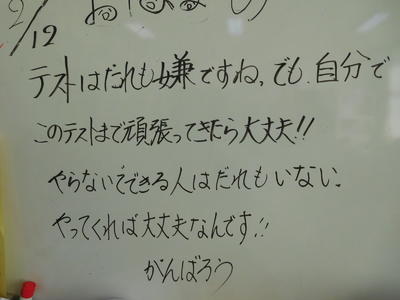 2/12
テストはだれも嫌ですね、でも、自分で
このテストまで頑張ってきたら大丈夫!!
やらないでできる人はだれもいない、
やってくれば大丈夫なんです!!
がんばろう